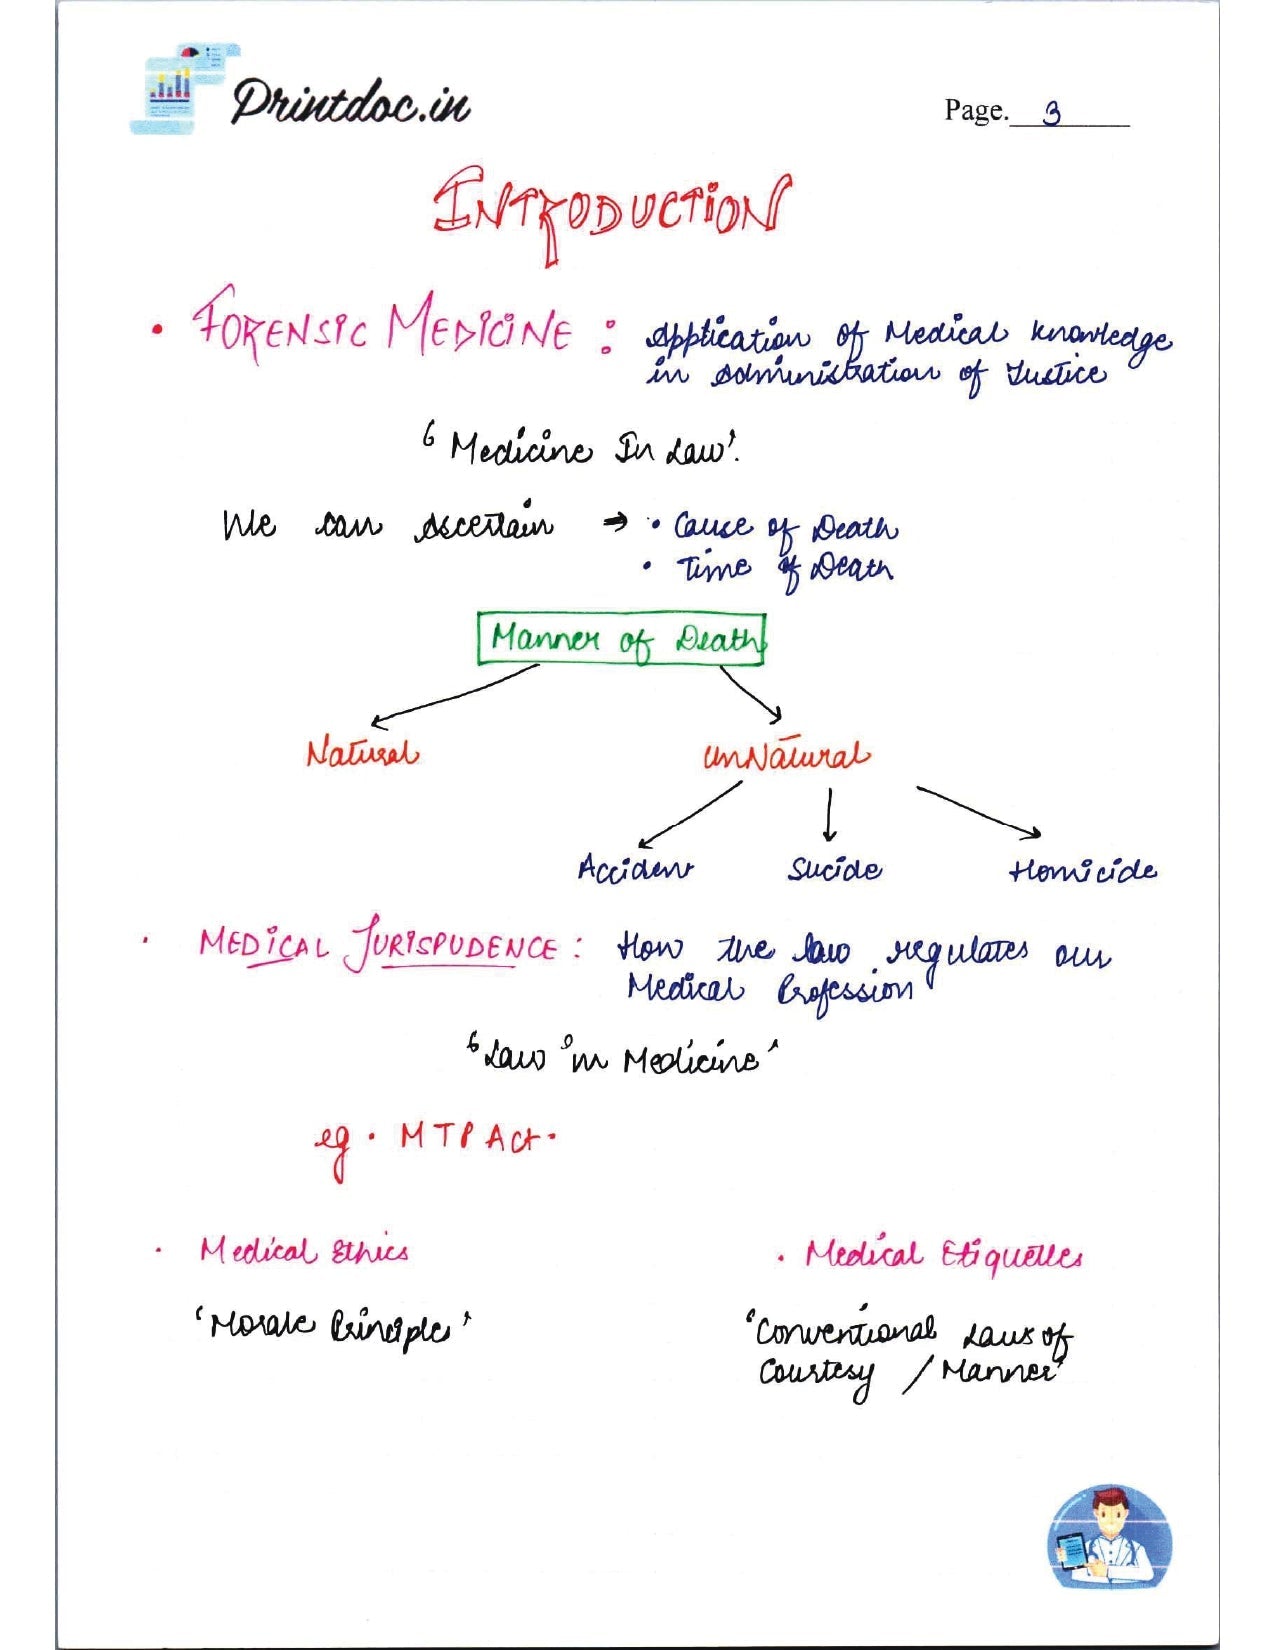 Printdoc.in
Page. 3
INTRODUCTION
• FORENSIC MEDICINE : Application of Medical knowledge
in administration of Justice
'Medicine In Law'.
We can ascertain → • Cause of Death
• Time of Death
Manner of Death
Natural UnNatural
Accident Sucide Homicide
• MEDICAL JURISPUDENCE : How the law regulates our
Medical Profession
'Law in Medicine'
eg • MTP Act •
• Medical Ethics • Medical Etiquettes
'Morale Principle' 'Conventional Laws of
Courtesy / Manner'